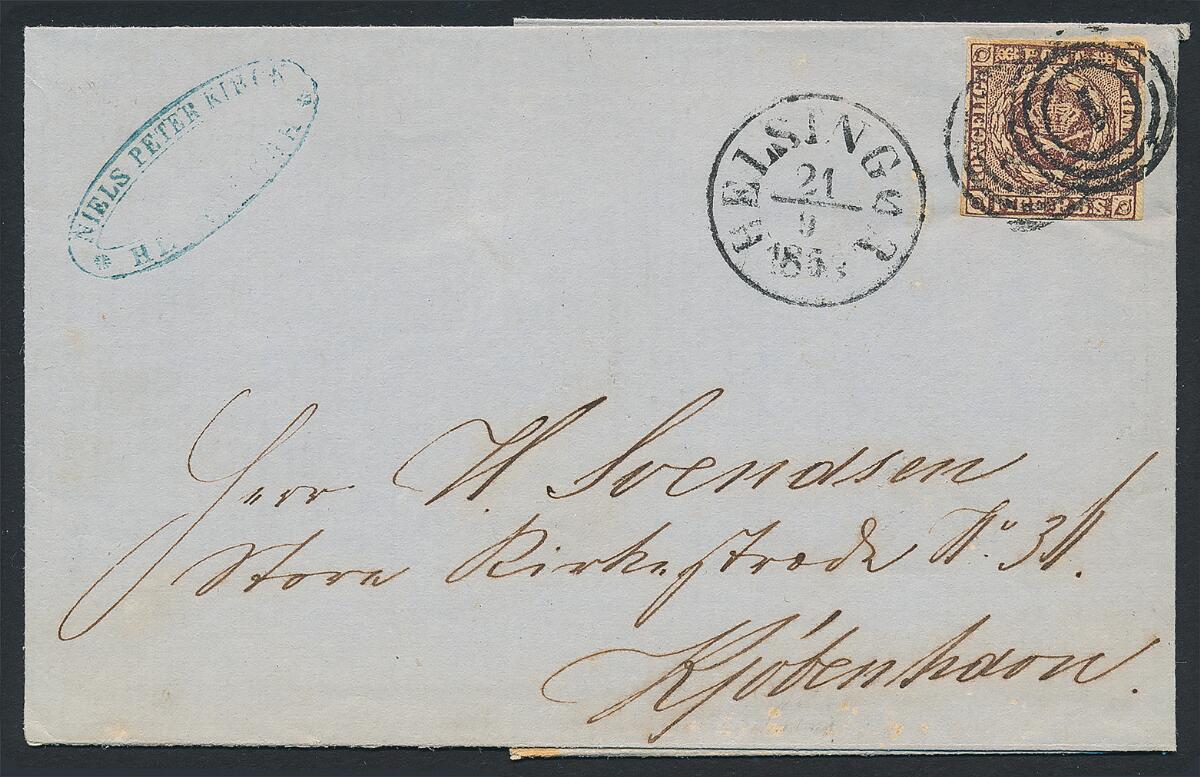 NIELS PETER KIRCK
HELSINGØR
21
9
Herr W. Svendsen
Store Kirkestræde No 3
Kjöbenhavn.